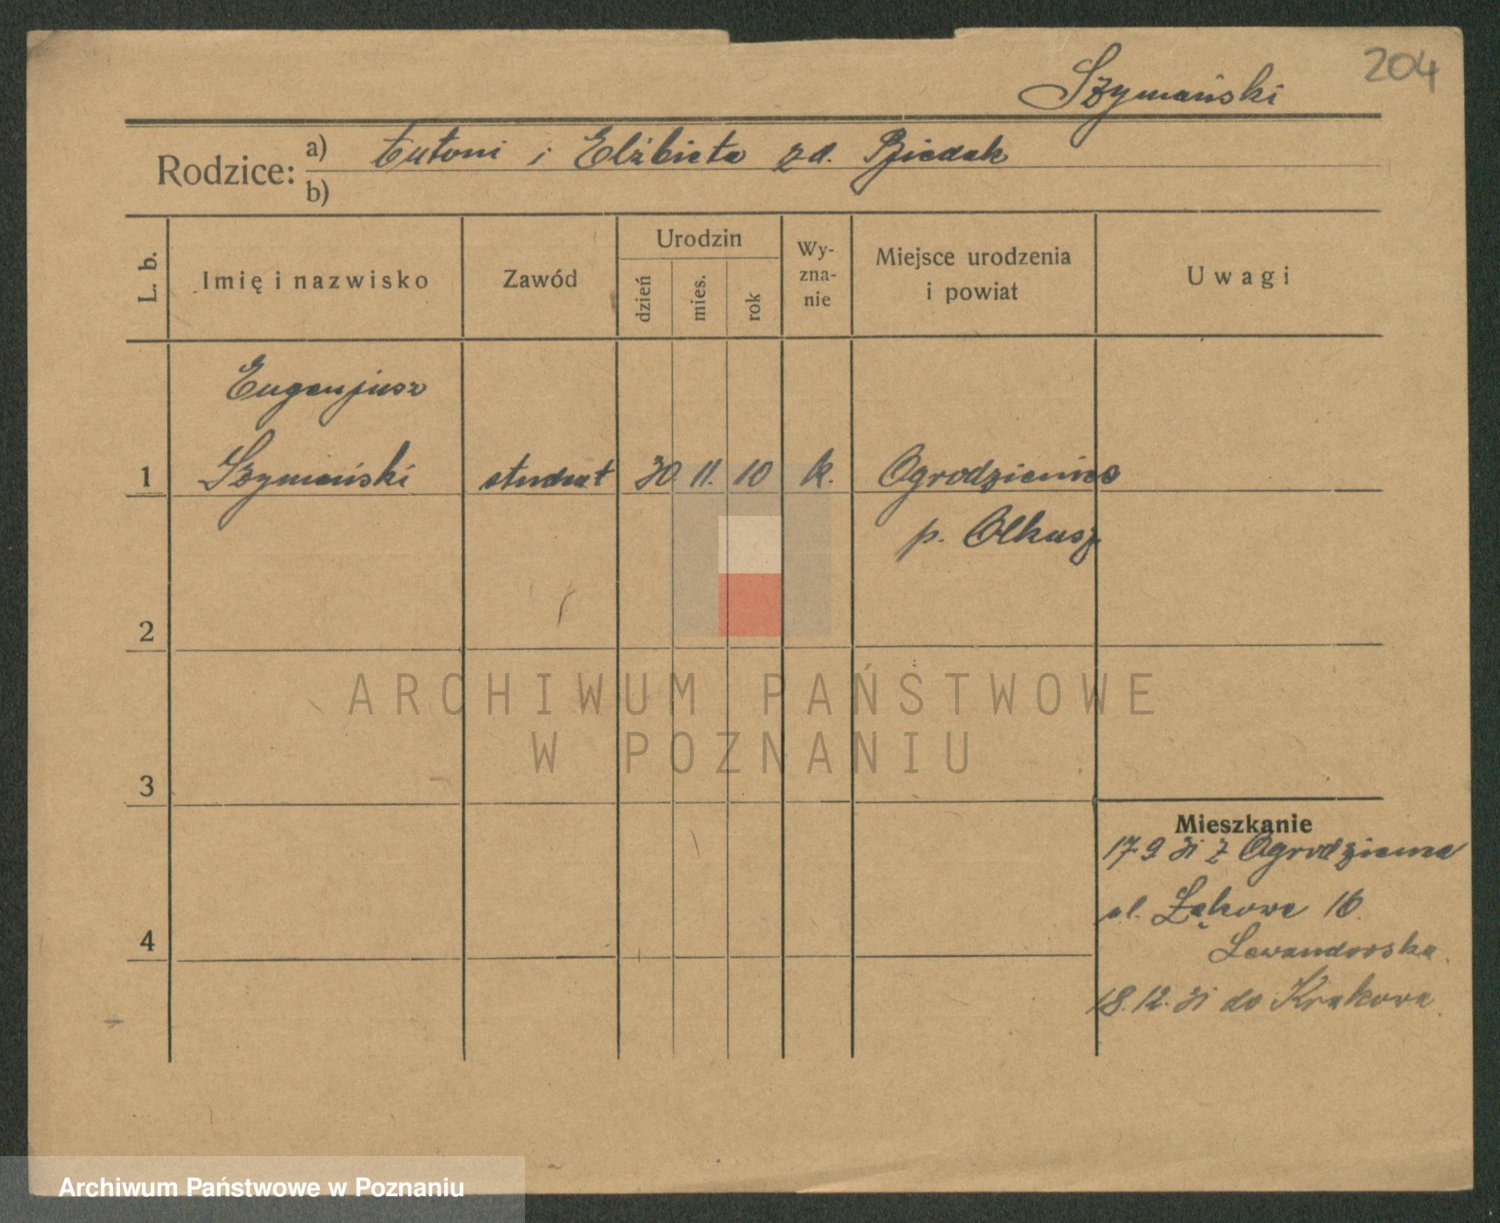 204
Szymański
Rodzice: a) Antoni i Elżbieta zd.
b)
L. b.
Imię i nazwisko
Zawód
Urodzin
dzień
mies.
rok
Wy-
zna-
nie
Miejsce urodzenia
i powiat
Uwagi
Eugenjusz
1 Szymański student 30 11. 10 k. Ogrodzieniec
p. Olkusz
2
3
4
Mieszkanie
17 9 31 z Ogrodzieńca
ul. Łąkowa 16
Lewandowska.
18.12.31 do Krakowa.
ARCHIWUM PAŃSTWOWE
W POZNANIU
Archiwum Państwowe w Poznaniu